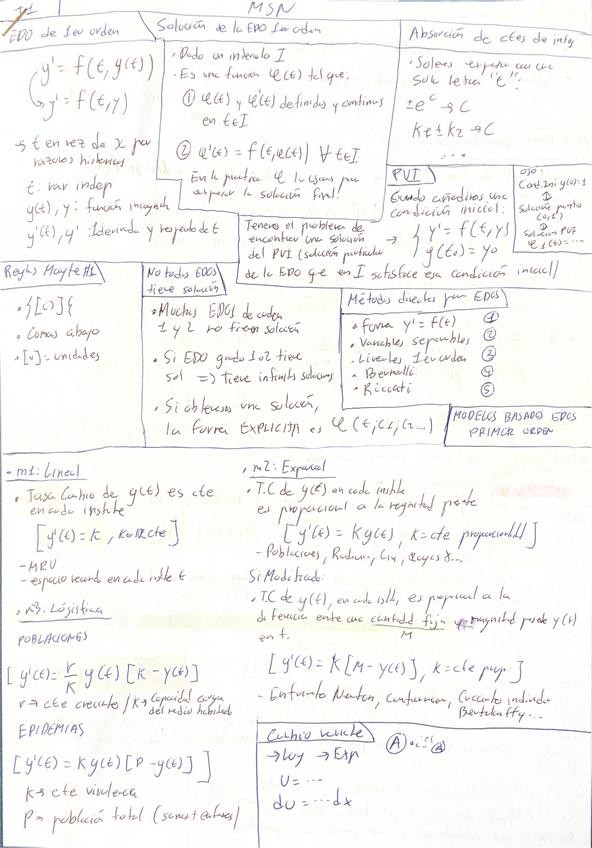 MSN
EDO de 1er orden
y' = f(t, y(t))
y' = f(t,y)
t en vez de x por
razones historicas
t: var indep
y(t), y: función incognita
y'(t), y': 1derivada y respecto de t
Solución de la EDO 1er orden
• Dado un intervalo I
• Es una función φ(t) tal que:
① φ(t) y φ'(t) definidas y continuas
en t∈I
② φ'(t) = f(t,φ(t)) ∀ t∈I
En la practica φ la usamos para
expresar la solución final!
Absorción de ctes de integ
• Solemos expresar con una
sola letra "C":
±e^c → C
K1 ± K2 → C
...
PVI
Cuando añadimos una
condición inicial:
{ y' = f(t,y)
y(t0) = y0
Tenemos el problema de
encontrar una solución
del PVI (solución particular
de la EDO que en I satisface esa condición inicial)
OJO:
Cond. Ini y(0)=1
Solución punto
(0,1)
Solución PVI
φ1(t)=...
Reglas Mayte #1
• {[()]}
• Comas abajo
• [u]=unidades
No todas EDOS
tiene solución
• Muchas EDOS de orden
1 y 2 no tienen solución
• Si EDO grado 1 o 2 tiene
sol => tiene infinitas soluciones
• Si obtenemos una solución,
la forma EXPLICITA es φ(t,C1,C2...)
Métodos directos para EDOS
• Forma y' = f(t) ①
• Variables separables ②
• Lineales 1er orden ③
• Bernoulli ④
• Riccati ⑤
MODELOS BASADOS EDOS
PRIMER ORDEN
- m1: Lineal
• Tasa Cambio de y(t) es cte
en cada instante
[y'(t) = K, K∈ℝ cte]
- MRU
- espacio recorrido en cada instante t
• m3: Logística
POBLACIONES
[y'(t) = r/K y(t) [K - y(t)]
r → cte crecimiento / K → Capacidad carga
del medio habitado
EPIDEMIAS
[y'(t) = K y(t) [P - y(t)] ]
K → cte virulencia
P = población total (sanos + enfermos)
• m2: Exponencial
• T.C de y(t) en cada instante
es proporcional a la magnitud presente
[y'(t) = K y(t), K = cte proporcionalidad]
- Poblaciones, Radioac,
Si Modificado:
• T.C de y(t), en cada instante, es proporcional a la
diferencia entre una cantidad fija y magnitud presente y(t)
M
en t.
[y'(t) = K[M - y(t)], K = cte prop.]
- Enfriamiento Newton, Crecimiento individuo
Bertalanffy...
Cambio variable
→ Log → Exp
U = ...
dU = ... dx
A